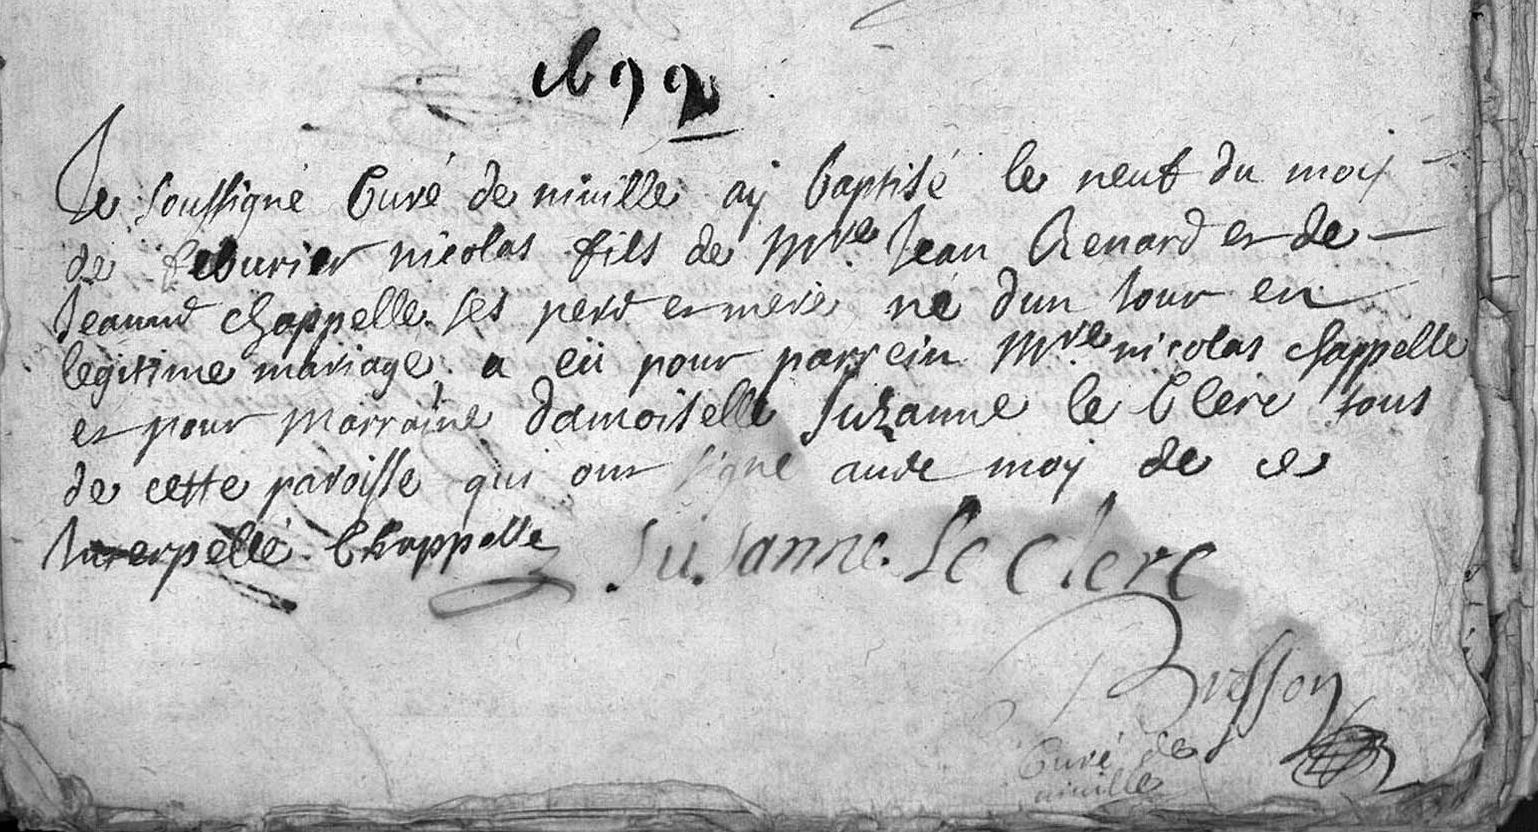 1692
Je soussigné Curé de niuille aÿ baptisé le neuf du moy
de feburier nicolas fils de Mre Jean Renard et de
Jeanne chappelle ses pere et mere, né dun iour en
legitime mariage. a eü pour parrein Mre nicolas chappelle
et pour marraine damoiselle Suzanne le Clerc tous
de cette paroisse qui ont signé auec moÿ de ce
Interpellé. Chappelle Susanne Le clerc
Bresson
Curé de
niuille